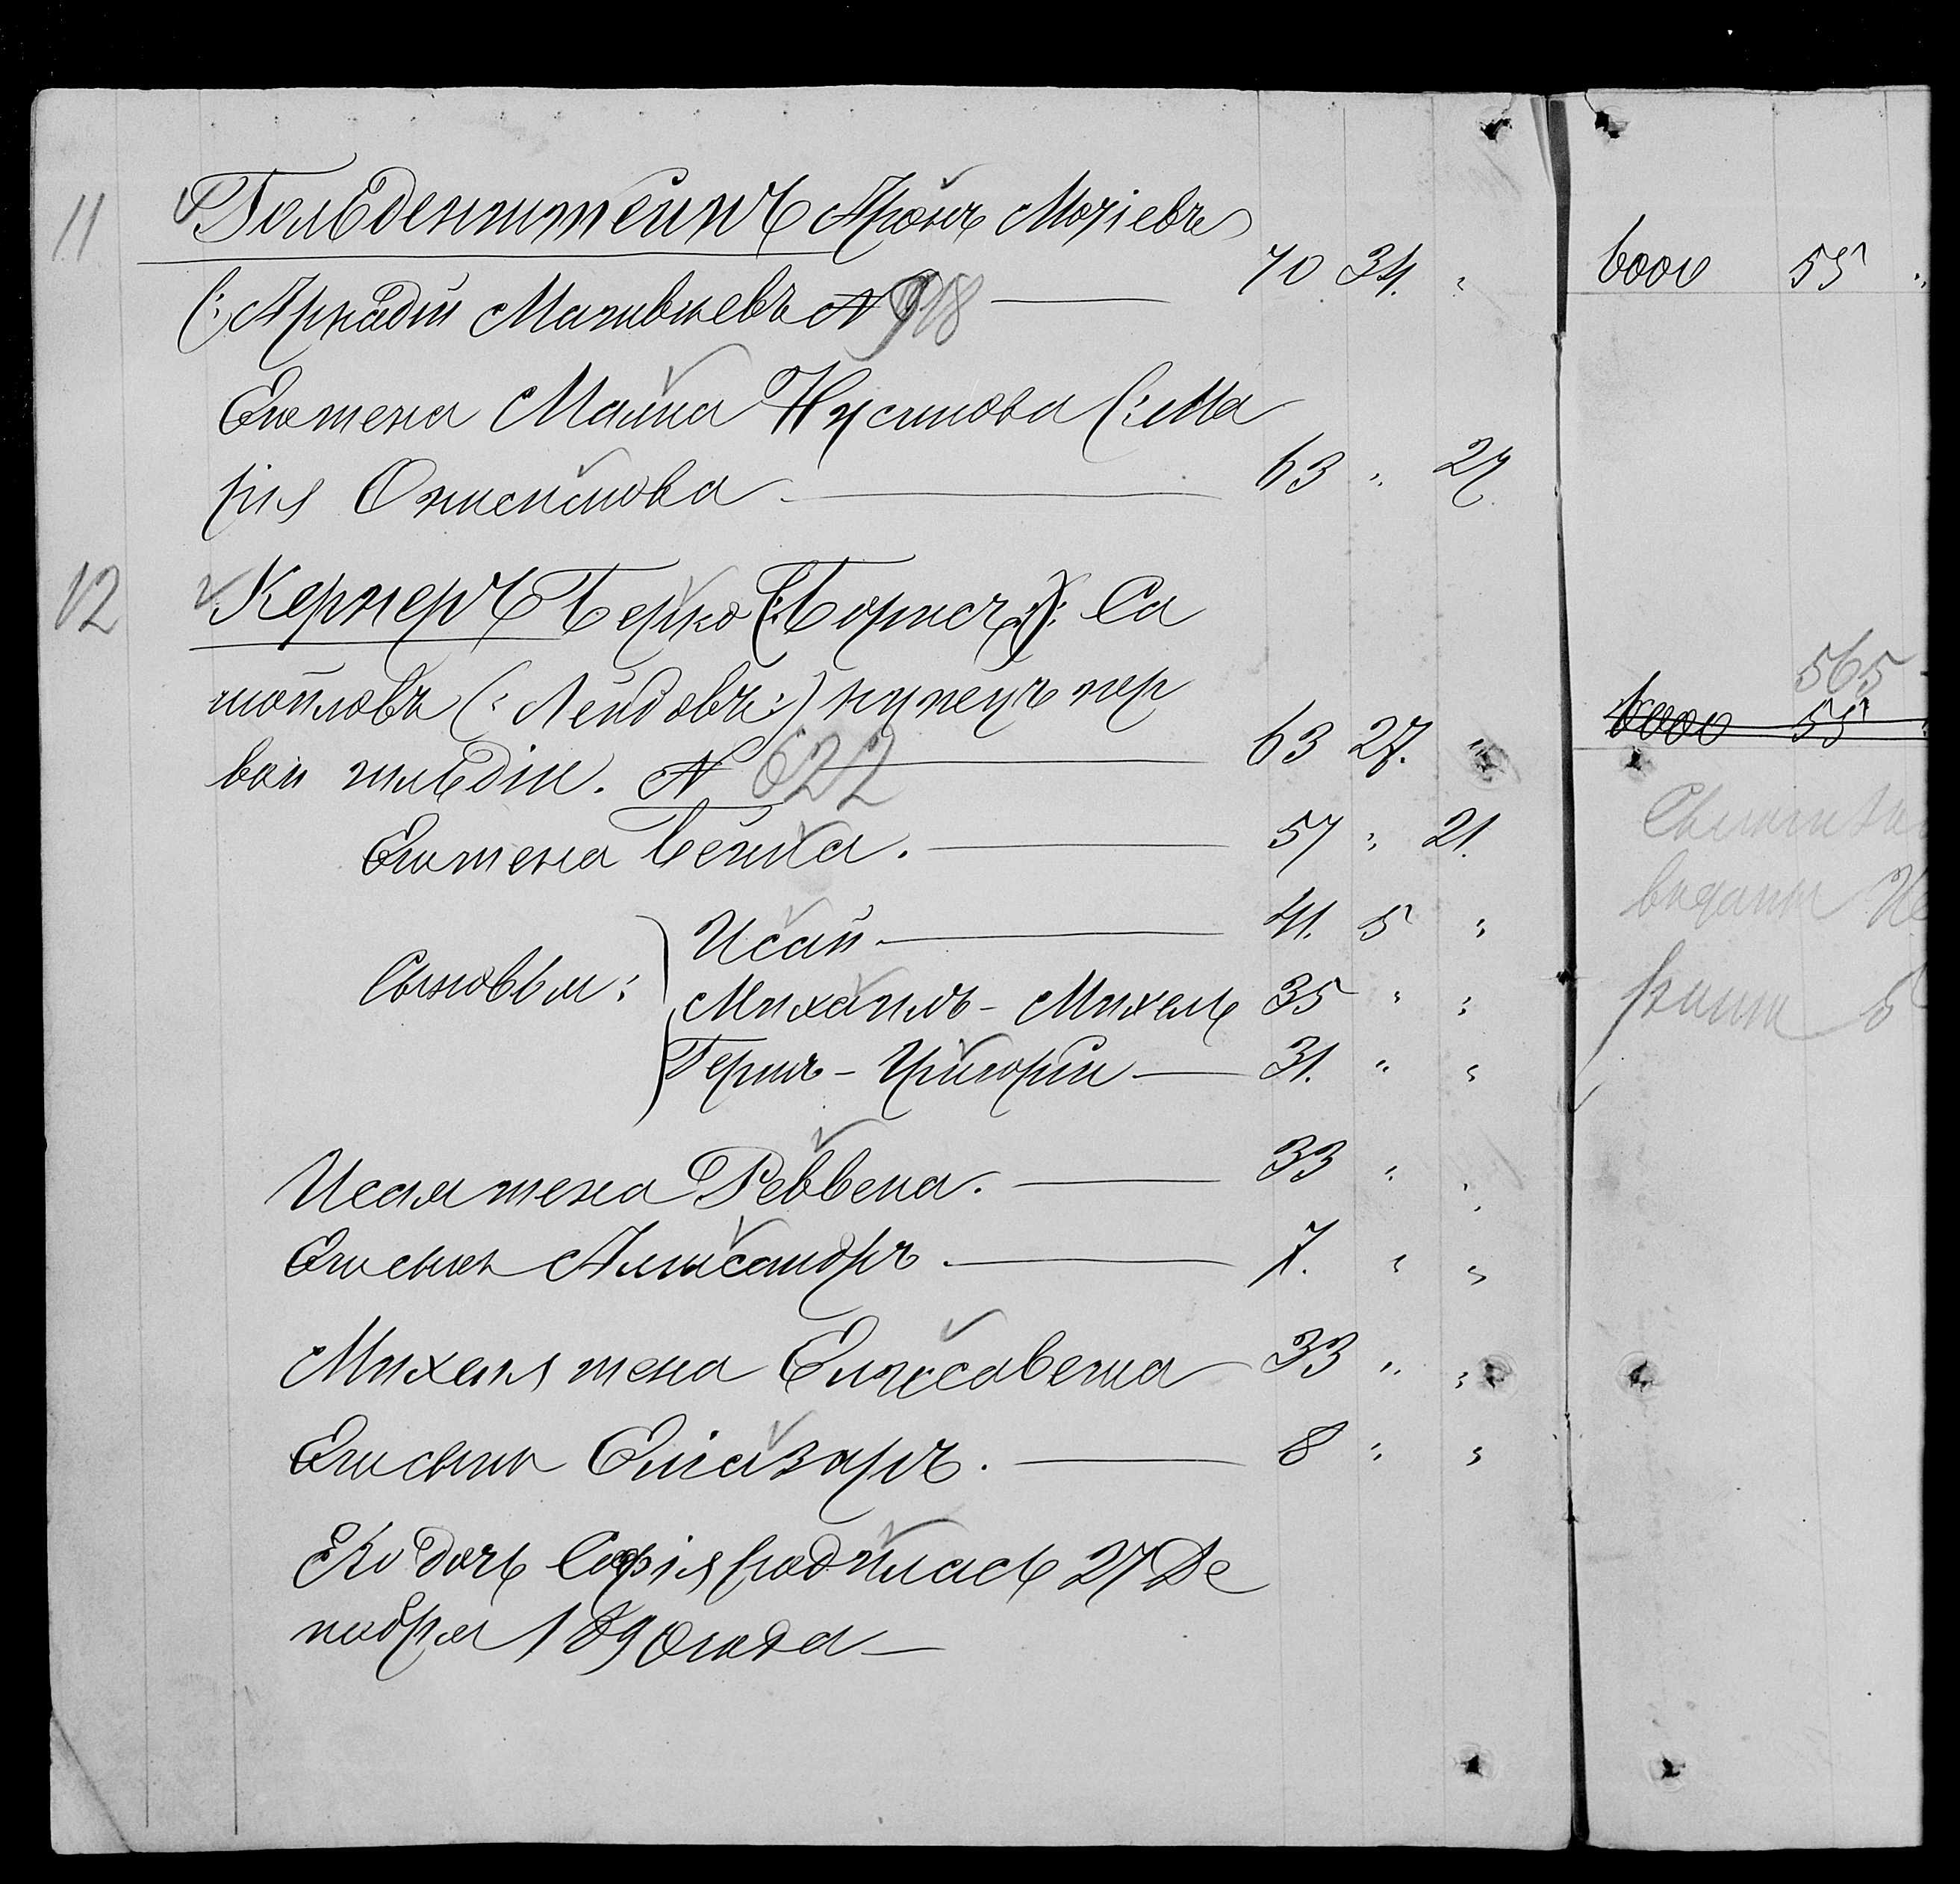 11 Гольденштейнъ Аронъ Мовіевъ
(: Аркадій Матвѣевъ № 918 — 70 34. " 6000 55 "
Его жена Майня Нусинова (: Ма
рія Осиповна — 63 " 27
12 Кернеръ Берко (: Борисъ :) Са
мойловъ (: Лейбовъ :) купецъ пер 565
вой гильдіи. № 622 — 63 27. " 6000 55
Его жена Бейла. — 57 " 21.
Исай — 41. 5 "
Сыновья: Михаилъ - Михель 35 " "
Гершъ - Григорій — 31. " "
Исая жена Реввека. — 33 " "
Его сынъ Александръ — 7. " "
Михеля жена Елисавета 33 " "
Его сынъ Елеазаръ. — 8 " "
Его дочь Софія родилась 27 Де
кабря 1890 года —